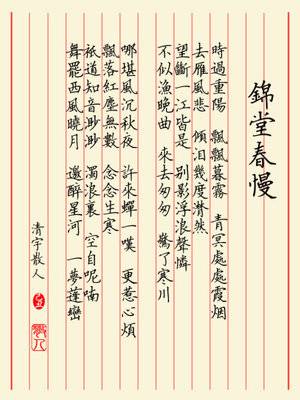 錦堂春慢
時過重陽 飄飄暮霧 青冥處處霞烟
去雁風悲 傾泪幾度潸然
望斷一江皆是 別影浮浪聲憐
不似漁晚曲 來去匆匆 驚了寒川
哪堪風沉秋夜 許來蟬一嘆 更惹心煩
飄落紅塵無數 念念生寒
衹道知音渺渺 濁浪裏 空自呢喃
舞罷西風曉月 邀醉星河 一夢蓬巒
清宇散人